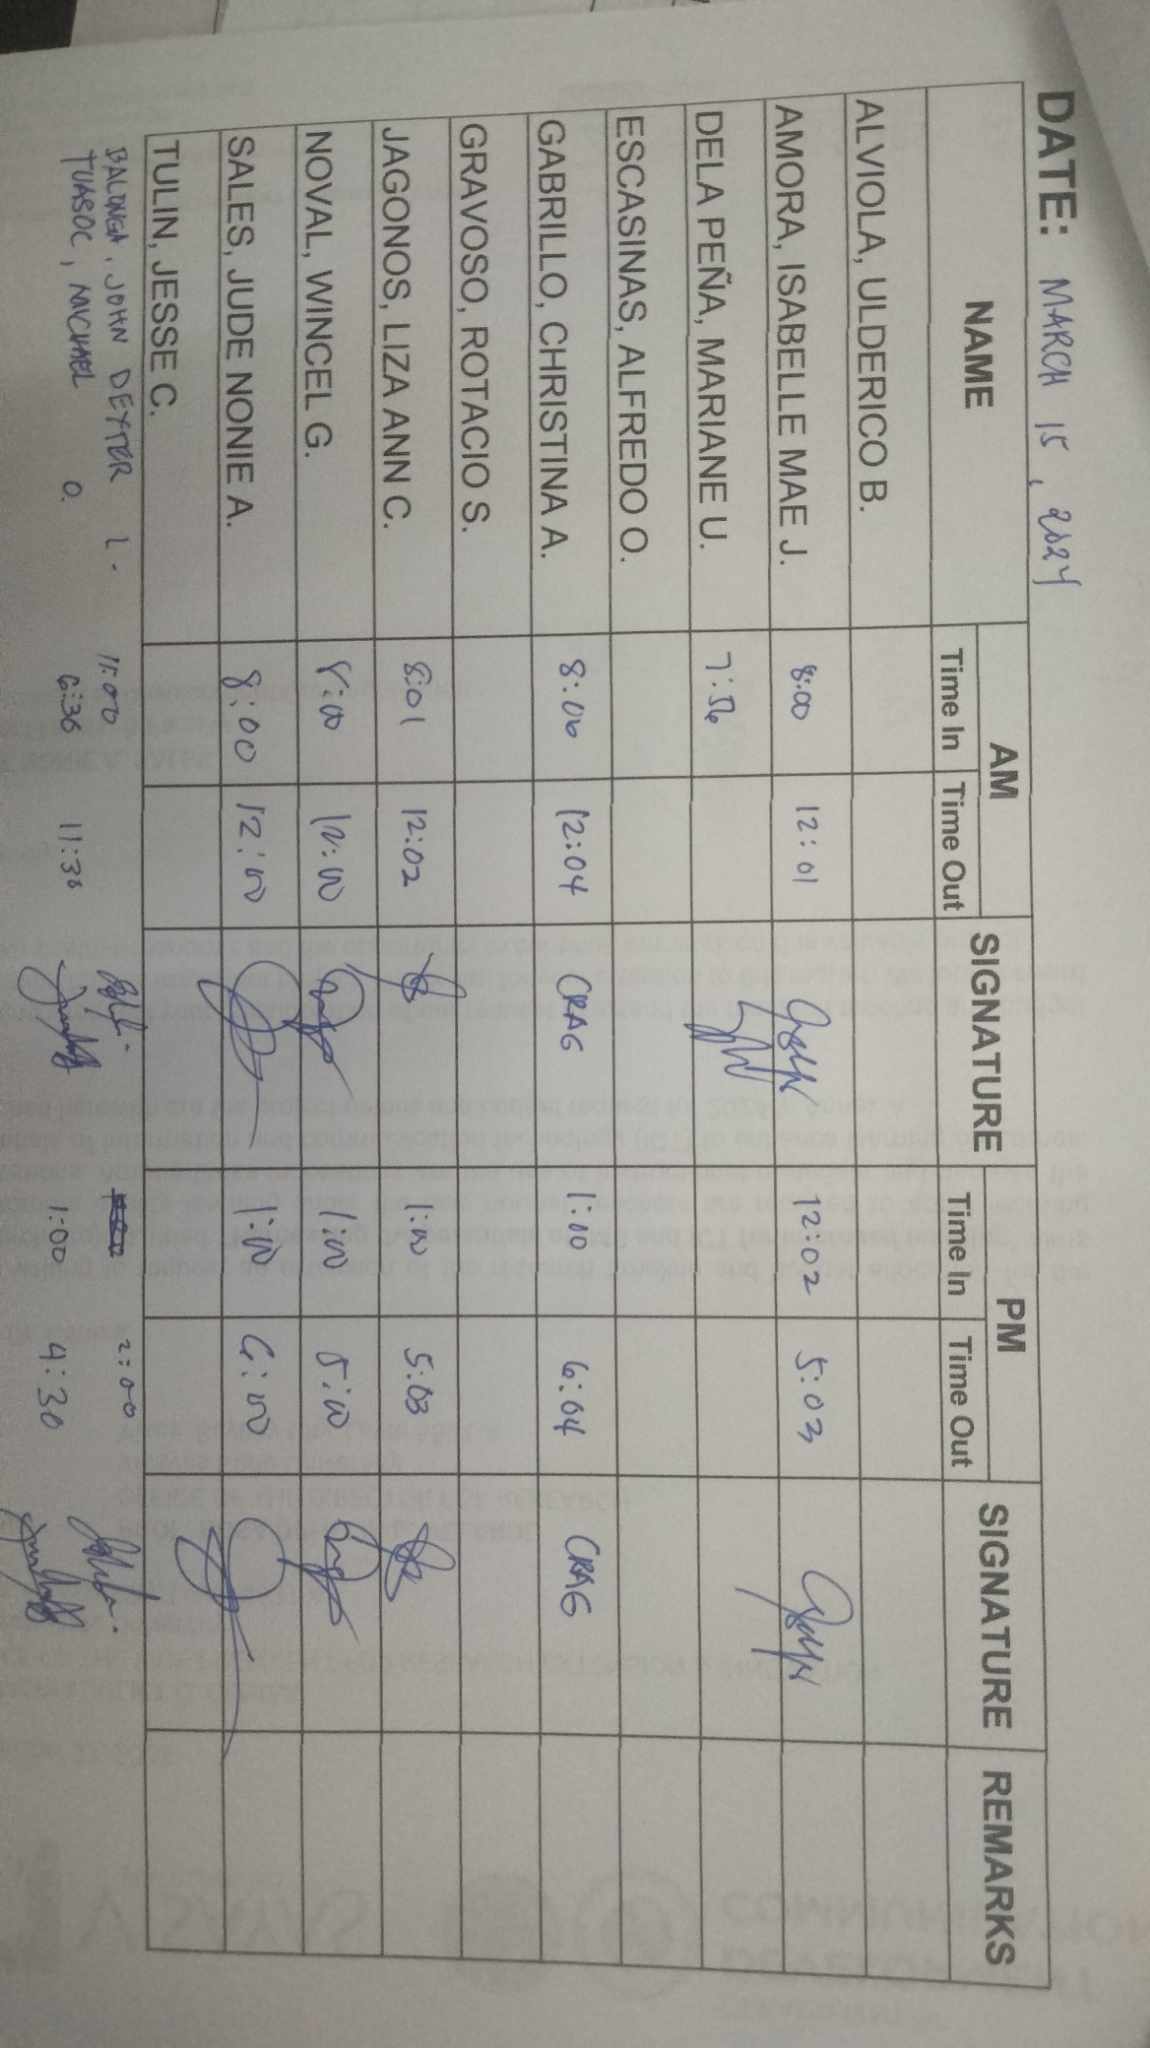 DATE: MARCH 15, 2024
NAME AM SIGNATURE PM SIGNATURE REMARKS
Time In Time Out Time In Time Out
ALVIOLA, ULDERICO B.
AMORA, ISABELLE MAE J. 8:00 12:01 12:02 5:03
DELA PEÑA, MARIANE U. 7:56
ESCASINAS, ALFREDO O.
GABRILLO, CHRISTINA A. 8:06 12:04 CRAG 1:00 6:04 CRAG
GRAVOSO, ROTACIO S.
JAGONOS, LIZA ANN C. 8:01 12:02 1:00 5:03
NOVAL, WINCEL G. 8:00 12:00 1:00 5:00
SALES, JUDE NONIE A. 8:00 12:00 1:00 6:00
TULIN, JESSE C.
BALONGA, JOHN DEXTER L. 11:00 2:00
TUASOC, MICHAEL O. 6:30 11:30 1:00 4:30